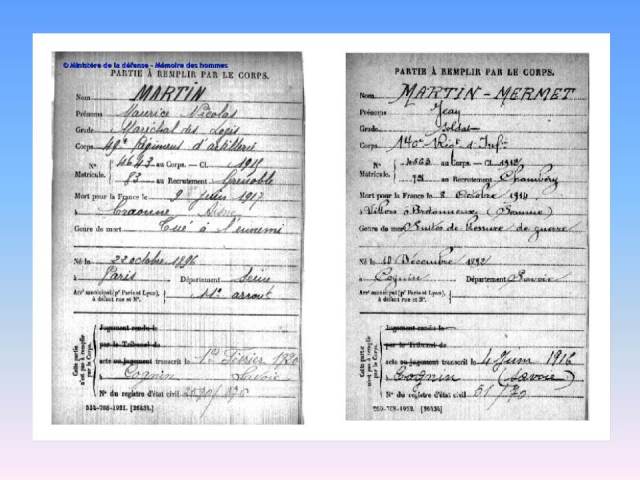 © Ministère de la défense - Mémoire des hommes
PARTIE À REMPLIR PAR LE CORPS.
Nom MARTIN
Prénoms Maurice Nicolas
Grade Maréchal des Logis
Corps 49e Régiment d'artillerie
N° 4643 au Corps. — Cl. 1915
Matricule. 83 au Recrutement Grenoble
Mort pour la France le 9 Juin 1917
à Craonne Aisne
Genre de mort Tué à l'ennemi
Né le 22 octobre 1896
à Paris Département Seine
Arr municipal (pr Paris et Lyon), à défaut rue et N°. 11e arront
Cette partie n'est pas à remplir par le Corps.
Jugement rendu le
par le Tribunal de
acte ou jugement transcrit le 1er Février 1920
à Cognin Savoie
N° du registre d'état civil
534-708-1921. [26434.]
PARTIE À REMPLIR PAR LE CORPS.
Nom MARTIN-MERMET
Prénoms Jean
Grade Soldat
Corps 140e Rég t d'Infie
N° 4563 au Corps. — Cl. 1912
Matricule. au Recrutement Chambéry
Mort pour la France le 8 Octobre 1914
à
Genre de mort Suites de blessure de guerre
Né le 10 Décembre 1892
à Cognin Département Savoie
Arr municipal (pr Paris et Lyon), à défaut rue et N°.
Cette partie n'est pas à remplir par le Corps.
Jugement rendu le
par le Tribunal de
acte ou jugement transcrit le 4 Juin 1916
à Cognin (Savoie)
N° du registre d'état civil 51/
[26434]